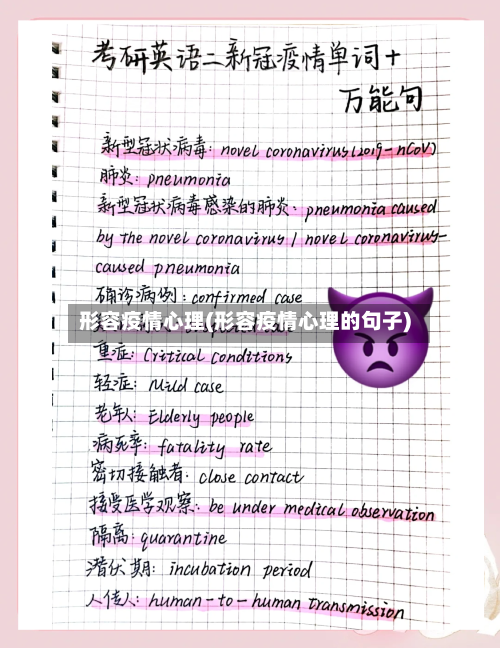 考研英语二新冠疫情单词+
万能句
新型冠状病毒: novel coronavirus(2019-nCoV)
肺炎: pneumonia
新型冠状病毒感染的肺炎: pneumonia caused
by the novel coronavirus / novel coronavirus-
caused pneumonia
确诊病例: confirmed case
形容疫情心理(形容疫情心理的句子)
重症: Critical conditions
轻症: Mild case
老年人: Elderly people
病死率: fatality rate
密切接触者: close contact
接受医学观察: be under medical observation
隔离: quarantine
潜伏期: incubation period
人传人: human-to-human transmission